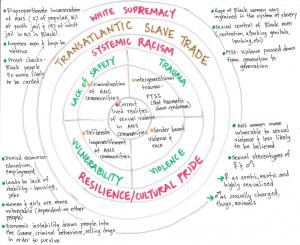 WHITE SUPREMACY
TRANSATLANTIC SLAVE TRADE
SYSTEMIC RACISM
LACK OF SAFETY
TRAUMA
VULNERABILITY
VIOLENCE
RESILIENCE/CULTURAL PRIDE
Criminalization
of ANS
communities
Intergenerational
trauma-
PTSS
(Post traumatic
slave syndrome)
Current
lived realities
of sexual violence
in ANS
communities
Deliberate
Impoverishment
of ANS
communities
Gender based
Violence &
race
Disproportionate incarceration
of ANS
jail in NS is Black)
Exposes men & boys to
violence
Street checks-
Black people
3x more likely
to be carded
Denied resources-
Education,
employment
Leads to lack of
stability - housing,
jobs
Women & girls are more
vulnerable (dependent on other
people)
Economic instability draws people into
the Game, criminal behaviour, selling drugs
in order to survive
Rape of Black women was
ingrained in the system of slavery
Sexual control of Black men
(castration, attacking genitals,
lynching, etc)
PTSS- Violence passed down
from generation to
generation
ANS women more
vulnerable to sexual
violence & less likely
to be believed
Sexual stereotypes of
♀ & ♂
♀ as erotic, exotic and
highly sexualized
♂ as sexually charged,
thugs, animals